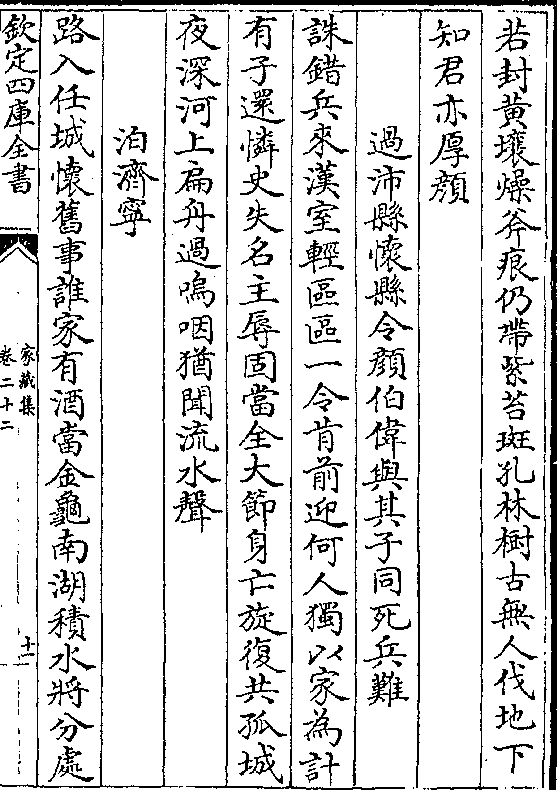 若封黃壤燥斧痕仍帶紫苔斑孔林樹古無人伐地下
知君亦厚顏
過沛縣懷縣令顏伯偉與其子同死兵難
誅錯兵來漢室輕區區一令肯前迎何人獨以家為計
有子還憐史失名主辱固當全大節身亡旋復共孤城
夜深河上扁舟過嗚咽猶聞流水聲
泊濟寧
路入任城懷舊事誰家有酒當金龜南湖積水將分處
欽定四庫全書
家藏集
卷二十二
十一